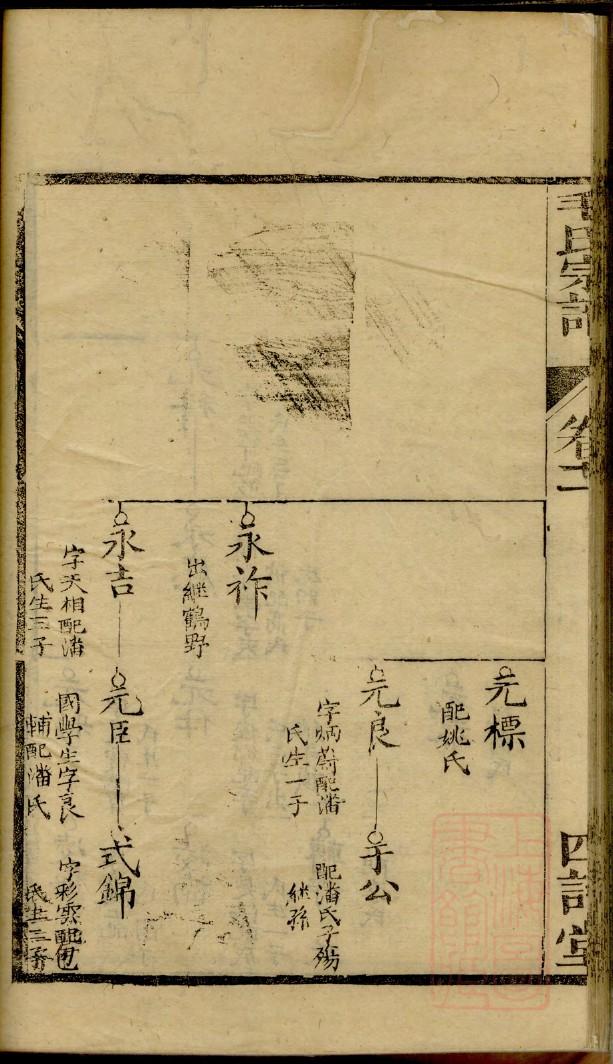 毛氏宗譜
卷十二
四訓堂
元標
配姚氏
元良
字炳蔚配潘
氏生一子
于公
配潘氏子殤
継孫
永祚
出継鶴野
永吉
字天相配潘
氏生三子
元臣
國學生字良
輔配潘氏
式錦
字彩雲配包
氏生三子